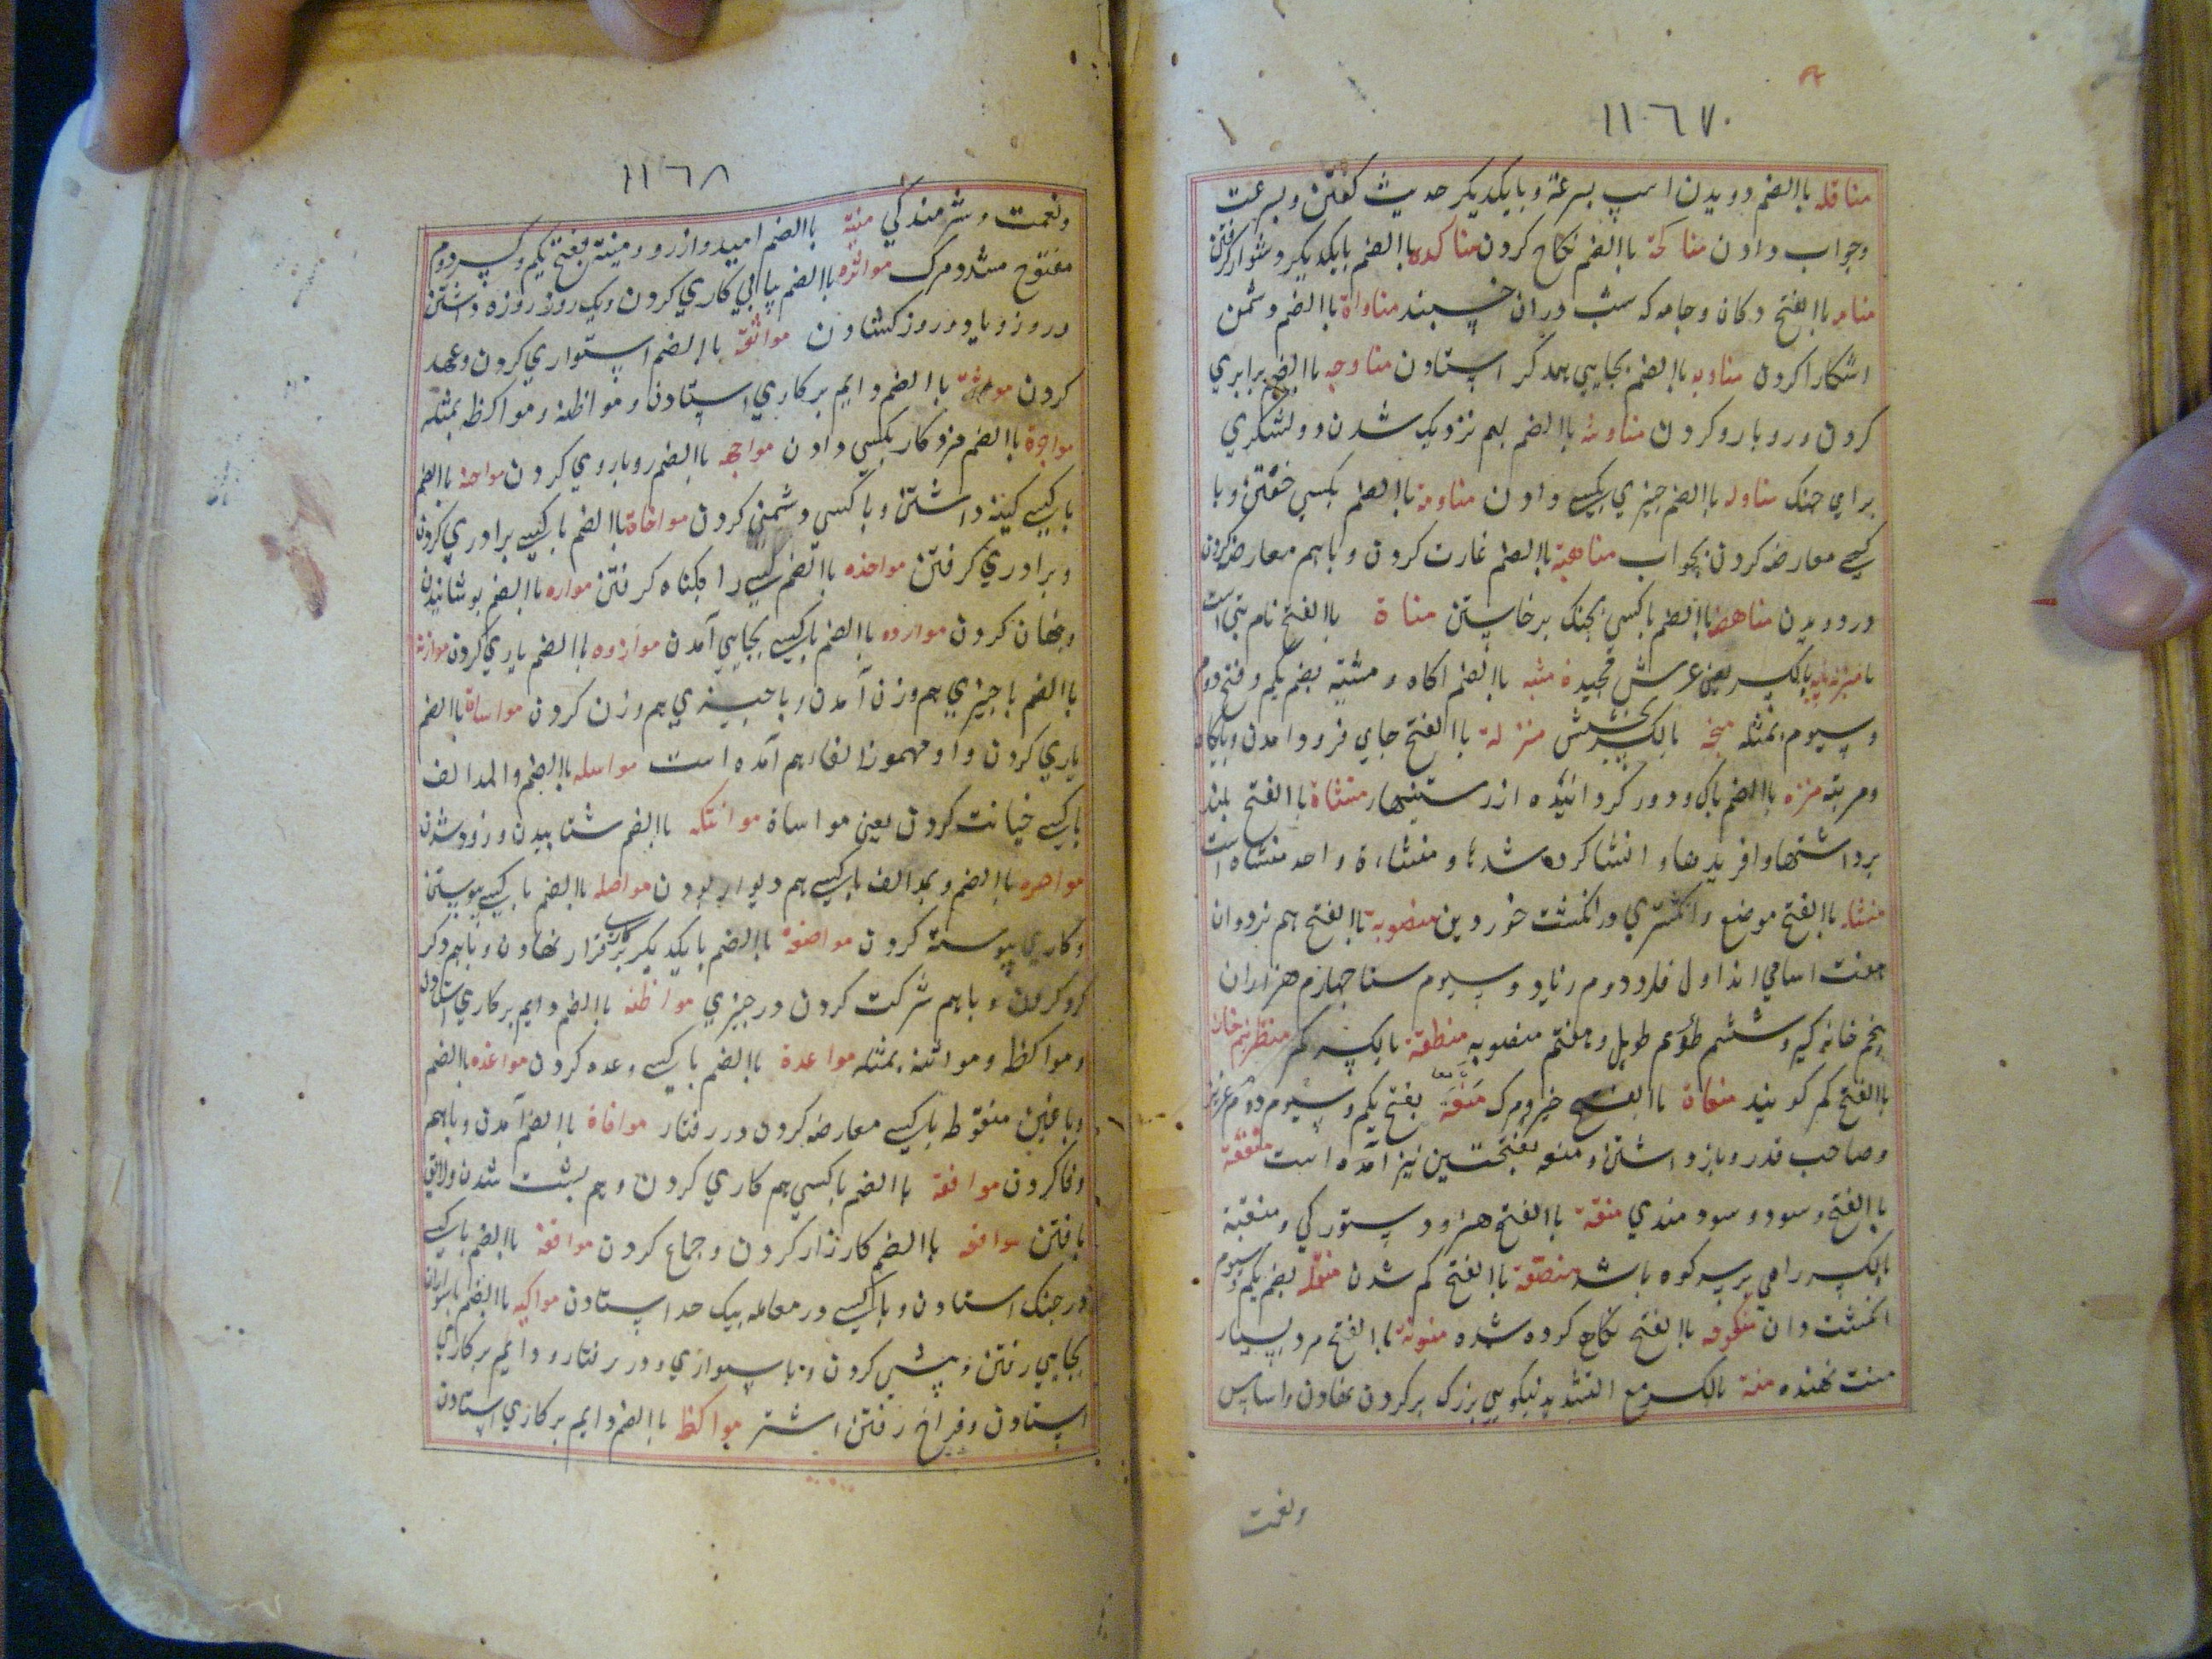 ١١٠٦٧٠
مناقله باالضم دویدن اسپ بسرعة و بایکدیکر حدیث کفتن و بسرعت
وجواب دادن مناکحة باالضم نکاح کردن مناکده باالضم بایکدیکر دشوار کرفتن
منامه باالفتح دکان وجامه که شب دران خسپند مناواة باالضم دشمن
اشکارا کردن مناوبه باالضم بجایی همدکر استادن مناوجه باالضم برابری
کردن و روبارو کردن مناوشه باالضم بهم نزدیک شدن دو لشکری
برای جنک مناوله باالضم چیزی بکسی دادن مناومة باالضم بکسی خفتن و با
کسی معارضه کردن بخواب مناهبة باالضم غارت کردن و باهم معارضه کردن
در دویدن مناهضه باالضم باکسی بجنک برخاستن مناة باالفتح نام بتی است
بالکسر یعنی عرش مجیده منبه باالضم اکاه و منبّه بضم یکم و فتح دوم
وسیوم بمثله منحة بالکسر بخشش منزلة باالفتح جای فرود امدن و پایکاه
ومرتبه منزه باالضم پاک و دور کردانیده از زشتیها منشاة باالفتح بلند
برداشتها وافریدها و انشا کرده شده و منشاءة واحد منشاه است
منشاء باالفتح موضع انکشتری در انکشت خوردین منصوبة باالفتح هم نرد و ان
هفت اسامی اند اول فارد دوم زیاد و سیوم ستا چهارم هزاران
پنجم خانه کیر و ششم طویل و هفتم منصوبه منطقة بالکسر کمر
باالفتح کمر کویند منعاة باالفتح خبر مرک منعة بفتح یکم و سیوم دوم عزیز
وصاحب قدر و باز داشتن و منعه بفتحتین نیز آمده است منفعة
باالفتح و سود و سود مندی منقبة باالفتح هنر و ستورکی و منقبة
بالکسر راهی بر سر کوه باشد منقصة باالفتح کم شدن منقله بضم یکم و سیوم
انکشت دان منکوحه باالفتح نکاح کرده شده منونة باالفتح مرد بسیار
منت نهنده منة بالکسر مع التشدید نیکویی بزرک بر کردن نهادن و اساس
ونعمت
١١٦٨
ونعمت و شرمندکی منیة باالضم امید و ارزو و منیة بفتح یکم و کسر دوم
مفتوح مشدد مرک مواتره باالضم پیاپی کاری کردن و یک روز روزه داشتن
و روز و یا دو روز کشادن مواثقة باالضم استواری کردن و عهد
کردن باالضم دایم بر کاری استادن و مواظبه و مواکظه بمثله
مواجرة باالضم مزد کار بکسی دادن مواجهه باالضم روباروی کردن مواحنه باالضم
باکسی کینه داشتن و باکسی دشمنی کردن مواخاة باالضم باکسی برادری کردن
و برادری کرفتن مواخذه باالضم کسی را بکناه کرفتن مواره باالضم پوشانیدن
و پنهان کردن موارده باالضم باکسی بجایی آمدن موازره باالضم یاری کردن موازنه
باالضم باچیزی هم وزن آمدن و باچیزی هم وزن کردن مواساة باالضم
یاری کردن و او مهموز الفاء هم آمده است مواسله باالضم والمد الف
باکسی خیانت کردن یعنی مواساة مواشکه باالضم شتابیدن و زود شدن
مواصره باالضم و بمد الف باکسی هم دیوار بودن مواصله باالضم باکسی پیوستن
و کاری پیوسته کردن مواضعة باالضم بایکدیکر بر کاری قرار نهادن و باهم دکر
کرو کردن و باهم شرکت کردن در چیزی مواظبه باالضم دایم بر کاری استادن
و مواکظه و بمثله مواعدة باالضم باکسی وعده کردن مواغده باالضم
و باغین منقوط باکسی معارضه کردن در رفتار موافاة باالضم آمدن و باهم
وفا کردن موافقة باالضم باکسی هم کاری کردن و هم پشت شدن و لایق
یافتن مواقعه باالضم کارزار کردن و جماع کردن مواقفة باالضم باکسی
در جنک استادن و باکسی در معامله بیک حد استادن مواکبه باالضم باسواران
بجایی رفتن و پیشی کردن و با سواری و در رفتار و دایم بر کاری
استادن و فراخ رفتن اشتر مواکظه باالضم دایم بر کاری استادن